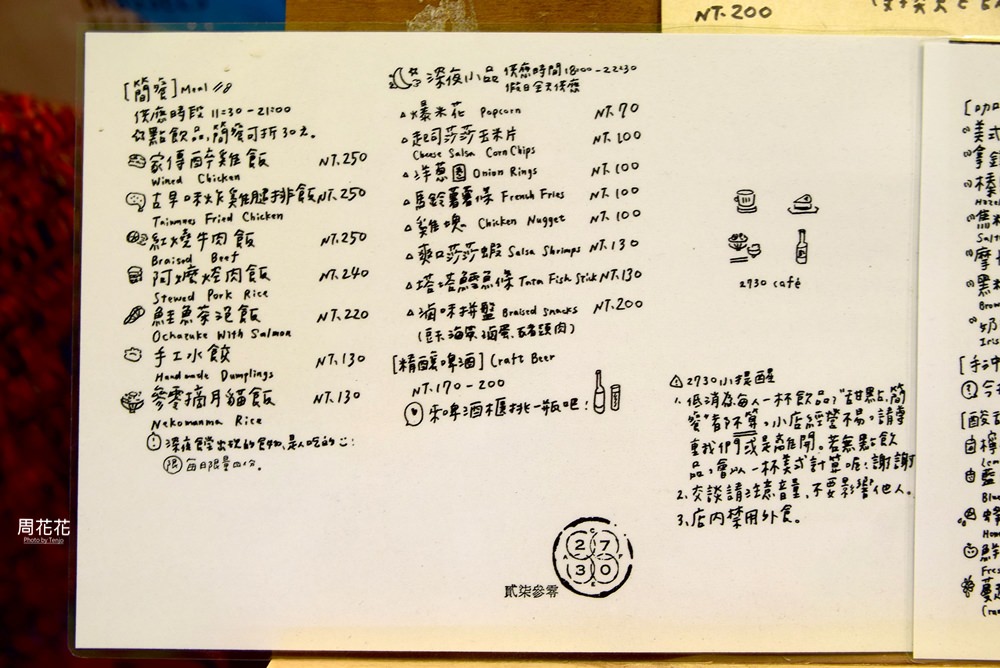 NT.200
[簡餐] Meal
供應時段 11:30-21:00
☆點飲品,簡餐可折30元。
家傳醉雞飯 NT.250
Wined Chicken
古早味炸雞腿排飯 NT.250
Taiwanes Fried Chicken
紅燒牛肉飯 NT.250
Braised Beef
阿嬤焢肉飯 NT.240
Stewed Pork Rice
鮭魚茶泡飯 NT.220
Ochazuke With Salmon
手工水餃 NT.130
Handmade Dumplings
參零摘月貓飯 NT.130
Nekomanma Rice
深夜食堂出現的食物,是人吃的
限 每日限量四份。
深夜小品 供應時間18:00-22:30
假日全天供應
△爆米花 Popcorn NT.70
△起司莎莎玉米片 NT.100
Cheese Salsa Corn Chips
△洋蔥圈 Onion Rings NT.100
△馬鈴薯薯條 French Fries NT.100
△雞塊 Chicken Nugget NT.100
△爽口莎莎蝦 Salsa Shrimps NT.130
△塔塔鱈魚條 Tata Fish Stick NT.130
△滷味拼盤 Braised Snacks NT.200
(豆干.海帶.滷蛋.豬頭肉)
[精釀啤酒] Craft Beer
NT.170-200
來啤酒櫃挑一瓶吧!
2730 café
2730小提醒
1.低消為每人一杯飲品。"甜點、簡
餐"都不算。小店經營不易,請尊
重我們或是離開。若無點飲
品,會以一杯美式計算呦!謝謝
2.交談請注意音量,不要影響他人。
3.店內禁用外食。
2 7
3 0
貳柒參零
周花花
Photo by Tenjo